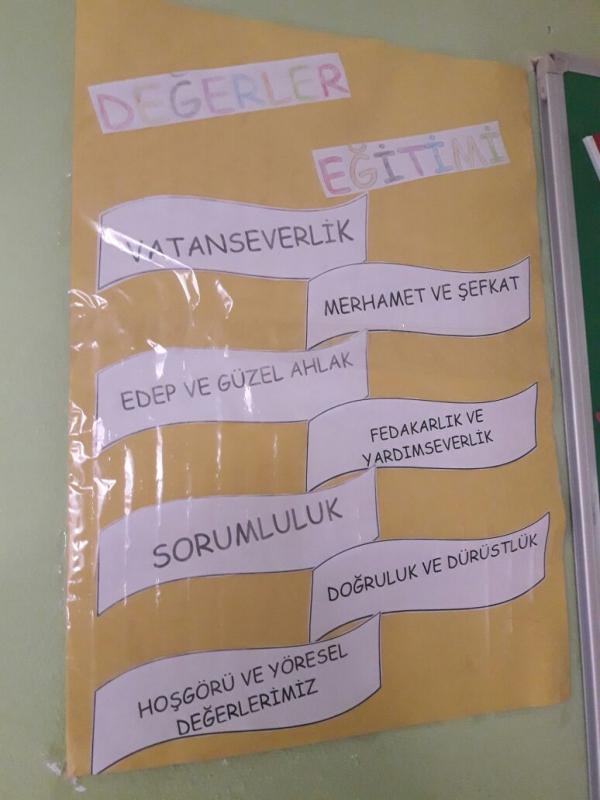 DEĞERLER
EĞİTİMİ
VATANSEVERLİK
MERHAMET VE ŞEFKAT
EDEP VE GÜZEL AHLAK
FEDAKARLIK VE
YARDIMSEVERLİK
SORUMLULUK
DOĞRULUK VE DÜRÜSTLÜK
HOŞGÖRÜ VE YÖRESEL
DEĞERLERİMİZ